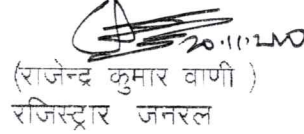 20.11.2020
(राजेन्द्र कुमार वाणी )
रजिस्ट्रार जनरल